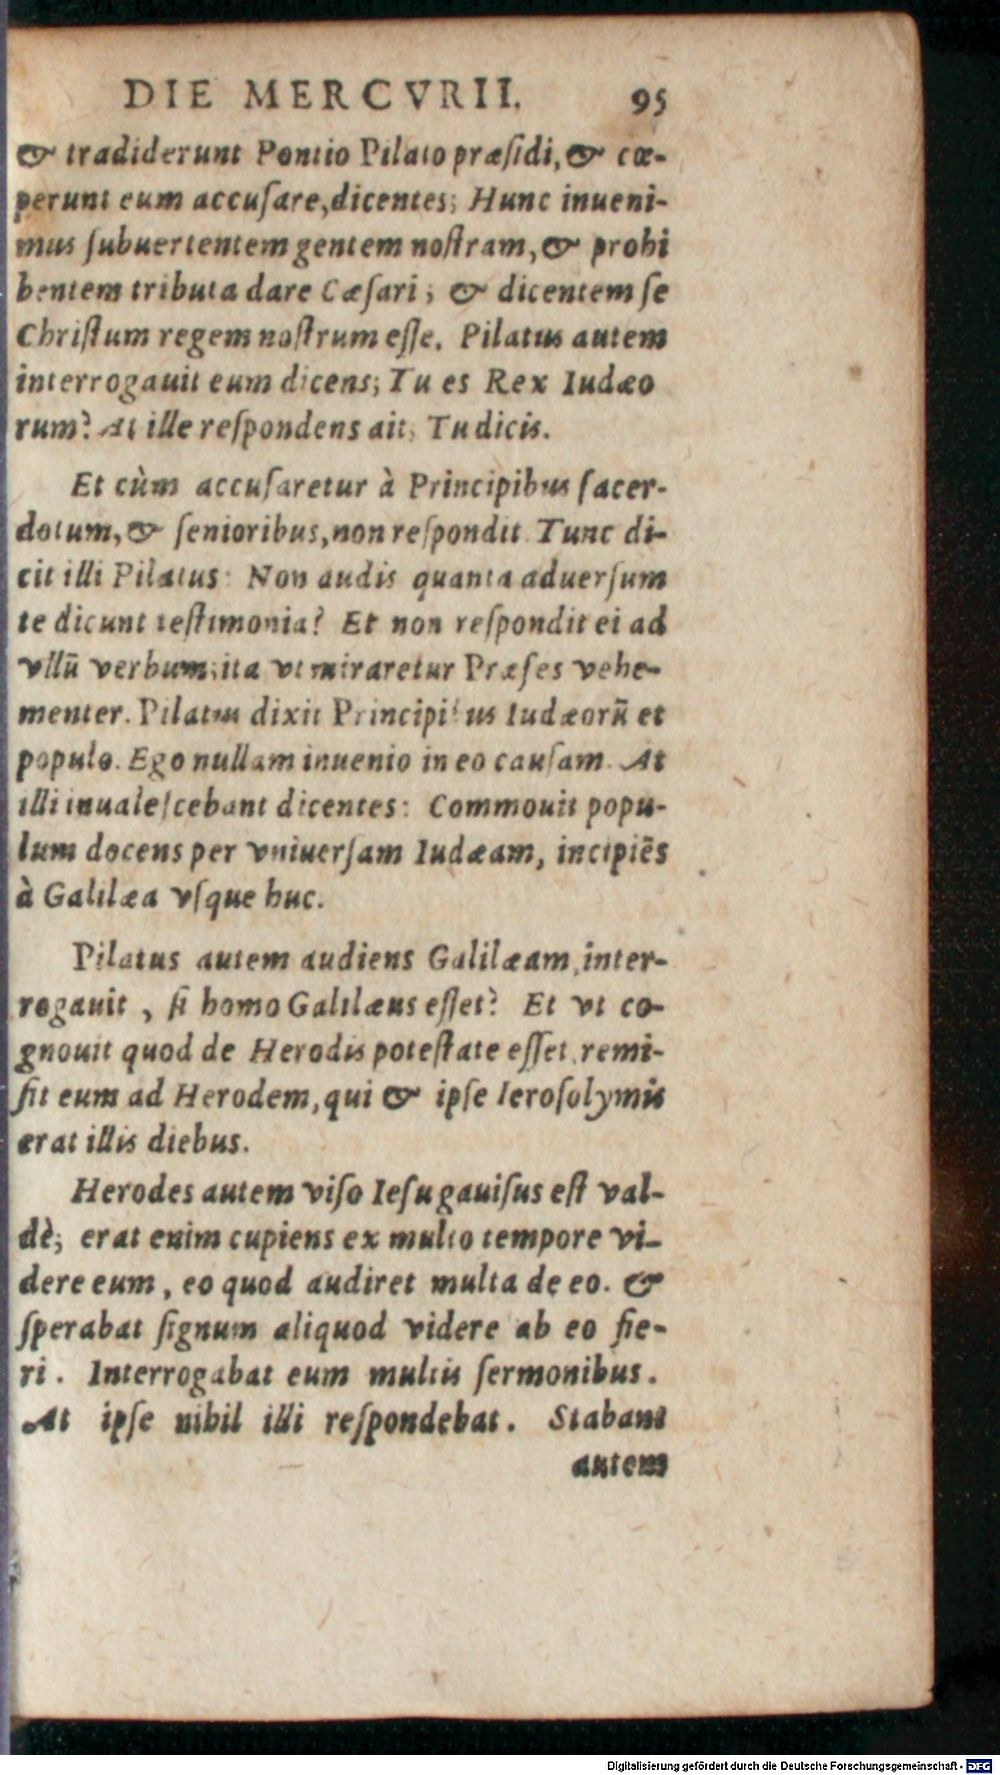 DIE MERCVRII. 95
& tradiderunt Pontio Pilato præſidi, & cœ-
perunt eum accuſare, dicentes; Hunc inueni-
mus ſubuertentem gentem noſtram, & prohi
bentem tributa dare Cæſari; & dicentem ſe
Chriſtum regem noſtrum eſſe. Pilatus autem
interrogauit eum dicens; Tu es Rex Iudæo
rum? At ille reſpondens ait; Tu dicis.
Et cùm accuſaretur à Principibus ſacer-
dotum, & ſenioribus, non reſpondit. Tunc di-
cit illi Pilatus: Non audis quanta aduerſum
te dicunt teſtimonia? Et non reſpondit ei ad
vllū verbum, ita vt miraretur Præſes vehe-
menter. Pilatus dixit Principibus Iudæorū et
populo. Ego nullam inuenio in eo cauſam. At
illi inualeſcebant dicentes: Commouit popu-
lum docens per vniuerſam Iudæam, incipiēs
à Galilæa vſque huc.
Pilatus autem audiens Galilæam, inter-
rogauit, ſi homo Galilæus eſſet? Et vt co-
gnouit quod de Herodis poteſtate eſſet, remi-
ſit eum ad Herodem, qui & ipſe Ieroſolymis
erat illis diebus.
Herodes autem viſo Ieſu gauiſus eſt val-
dè; erat enim cupiens ex multo tempore vi-
dere eum, eo quod audiret multa de eo. &
ſperabat ſignum aliquod videre ab eo fie-
ri. Interrogabat eum multis ſermonibus.
At ipſe nihil illi reſpondebat. Stabant
autem
Digitalisierung gefördert durch die Deutsche Forschungsgemeinschaft - DFG